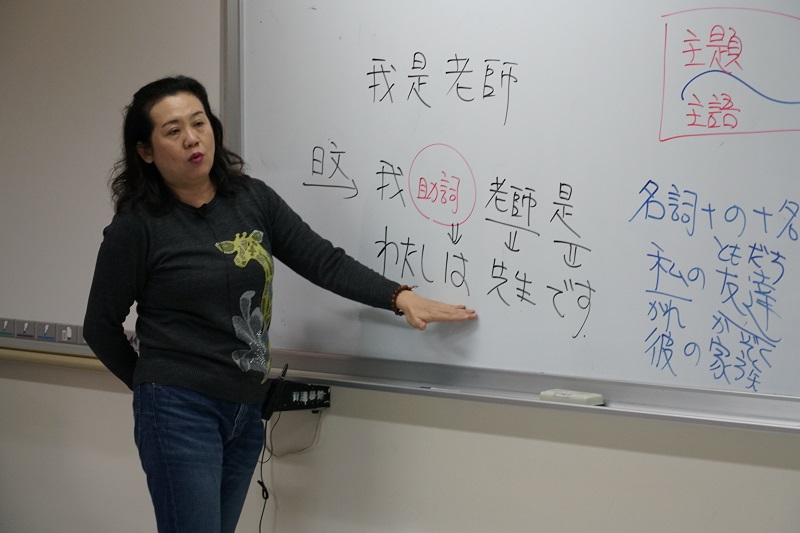 我是老師
日文
我 助詞 老師 是
わたし は 先生 です.
主題
主語
名詞+の+名
ともだち
私の友達
かれ かぞく
彼の家族